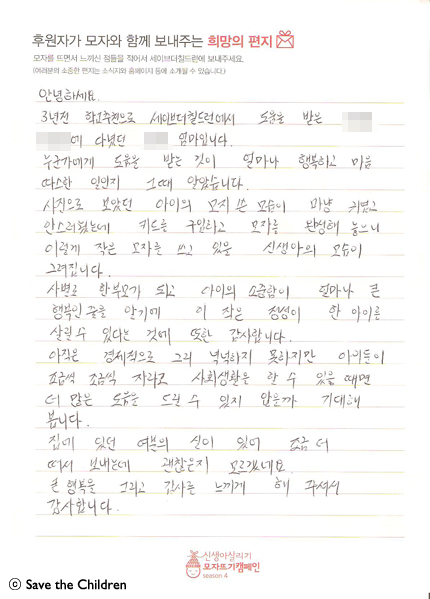 후원자가 모자와 함께 보내주는 희망의 편지
모자를 뜨면서 느끼신 점들을 적어서 세이브더칠드런에 보내주세요.
(여러분의 소중한 편지는 소식지와 홈페이지 등에 소개될 수 있습니다.)
안녕하세요.
3년전 학교추천으로 세이브더칠드런에서 도움을 받은
에 다녔던 엄마입니다.
누군가에게 도움을 받는 것이 얼마나 행복하고 마음
따스한 일인지 그때 알았습니다.
사진으로 보았던 아이의 모자 쓴 모습이 마냥 귀엽고
안스러웠는데 키트를 구입하고 모자를 완성해 놓으니
이렇게 작은 모자를 쓰고 있을 신생아의 모습이
그려집니다.
사별로 한부모가 되고 아이의 소중함이 얼마나 큰
행복인 줄을 알기에 이 작은 정성이 한 아이를
살릴 수 있다는 것에 또한 감사합니다.
아직은 경제적으로 그리 넉넉하지 못하지만 아이들이
조금씩 조금씩 자라고 사회생활은 할 수 있을 때면
더 많은 도움을 드릴 수 있지 않을까 기대해
봅니다.
집에 있던 여분의 실이 있어 조금 더
떠서 보내는데 괜찮은지 모르겠네요.
큰 행복을 그리고 감사를 느끼게 해 주셔서
감사합니다.
신생아살리기
모자뜨기캠페인
season 4
ⓒ Save the Children